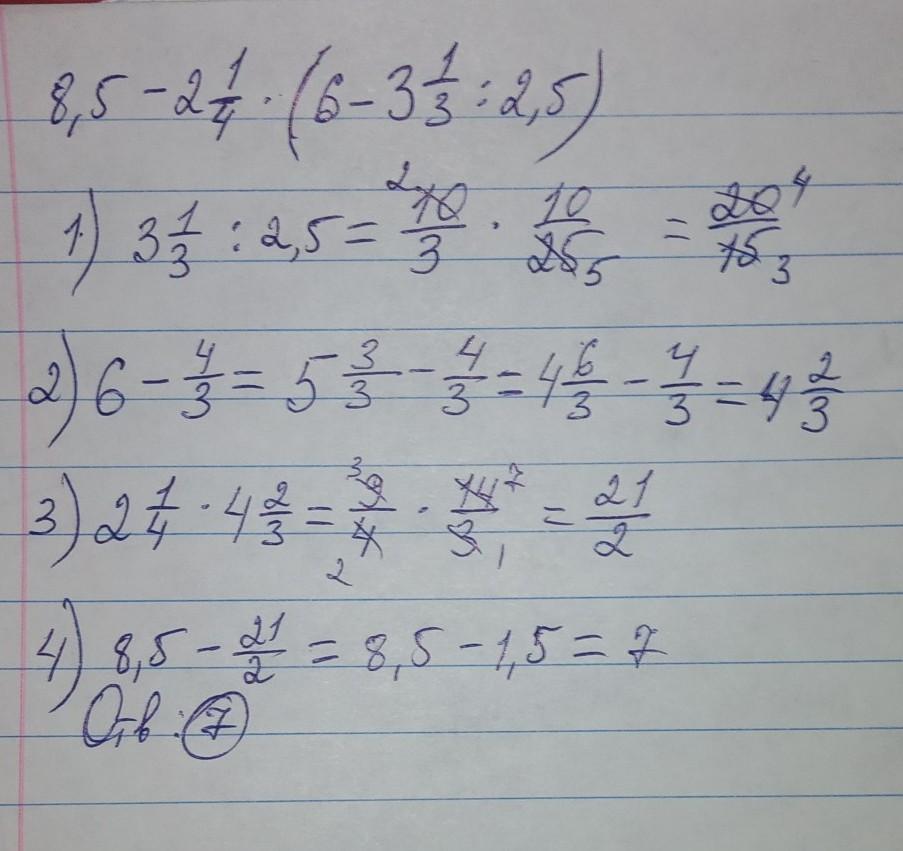 8,5 - 2 1/4 · (6 - 3 1/3 : 2,5)
1) 3 1/3 : 2,5 = 2 10/3 · 10/25 5 = 20 4/15 3
2) 6 - 4/3 = 5 3/3 - 4/3 = 4 6/3 - 4/3 = 4 2/3
3) 2 1/4 · 4 2/3 = 3 9/4 2 · 14 7/3 1 = 21/2
4) 8,5 - 21/2 = 8,5 - 1,5 = 7
Отв: 7